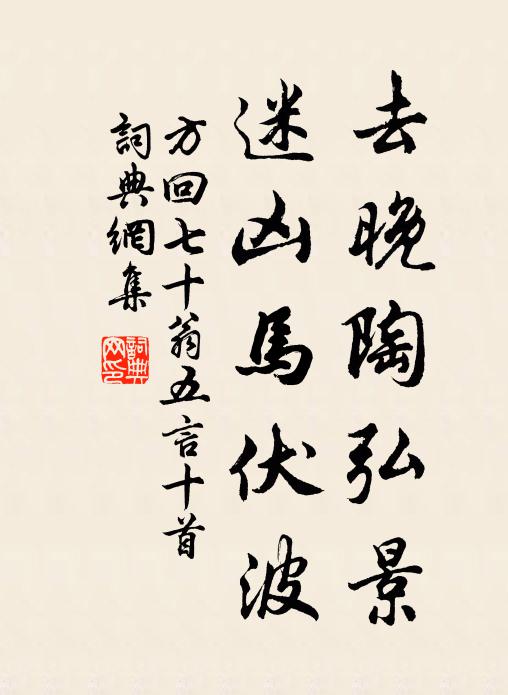 去晚陶弘景
迷凶馬伏波
方回七十翁五言十首
詞典網集
詞典網印